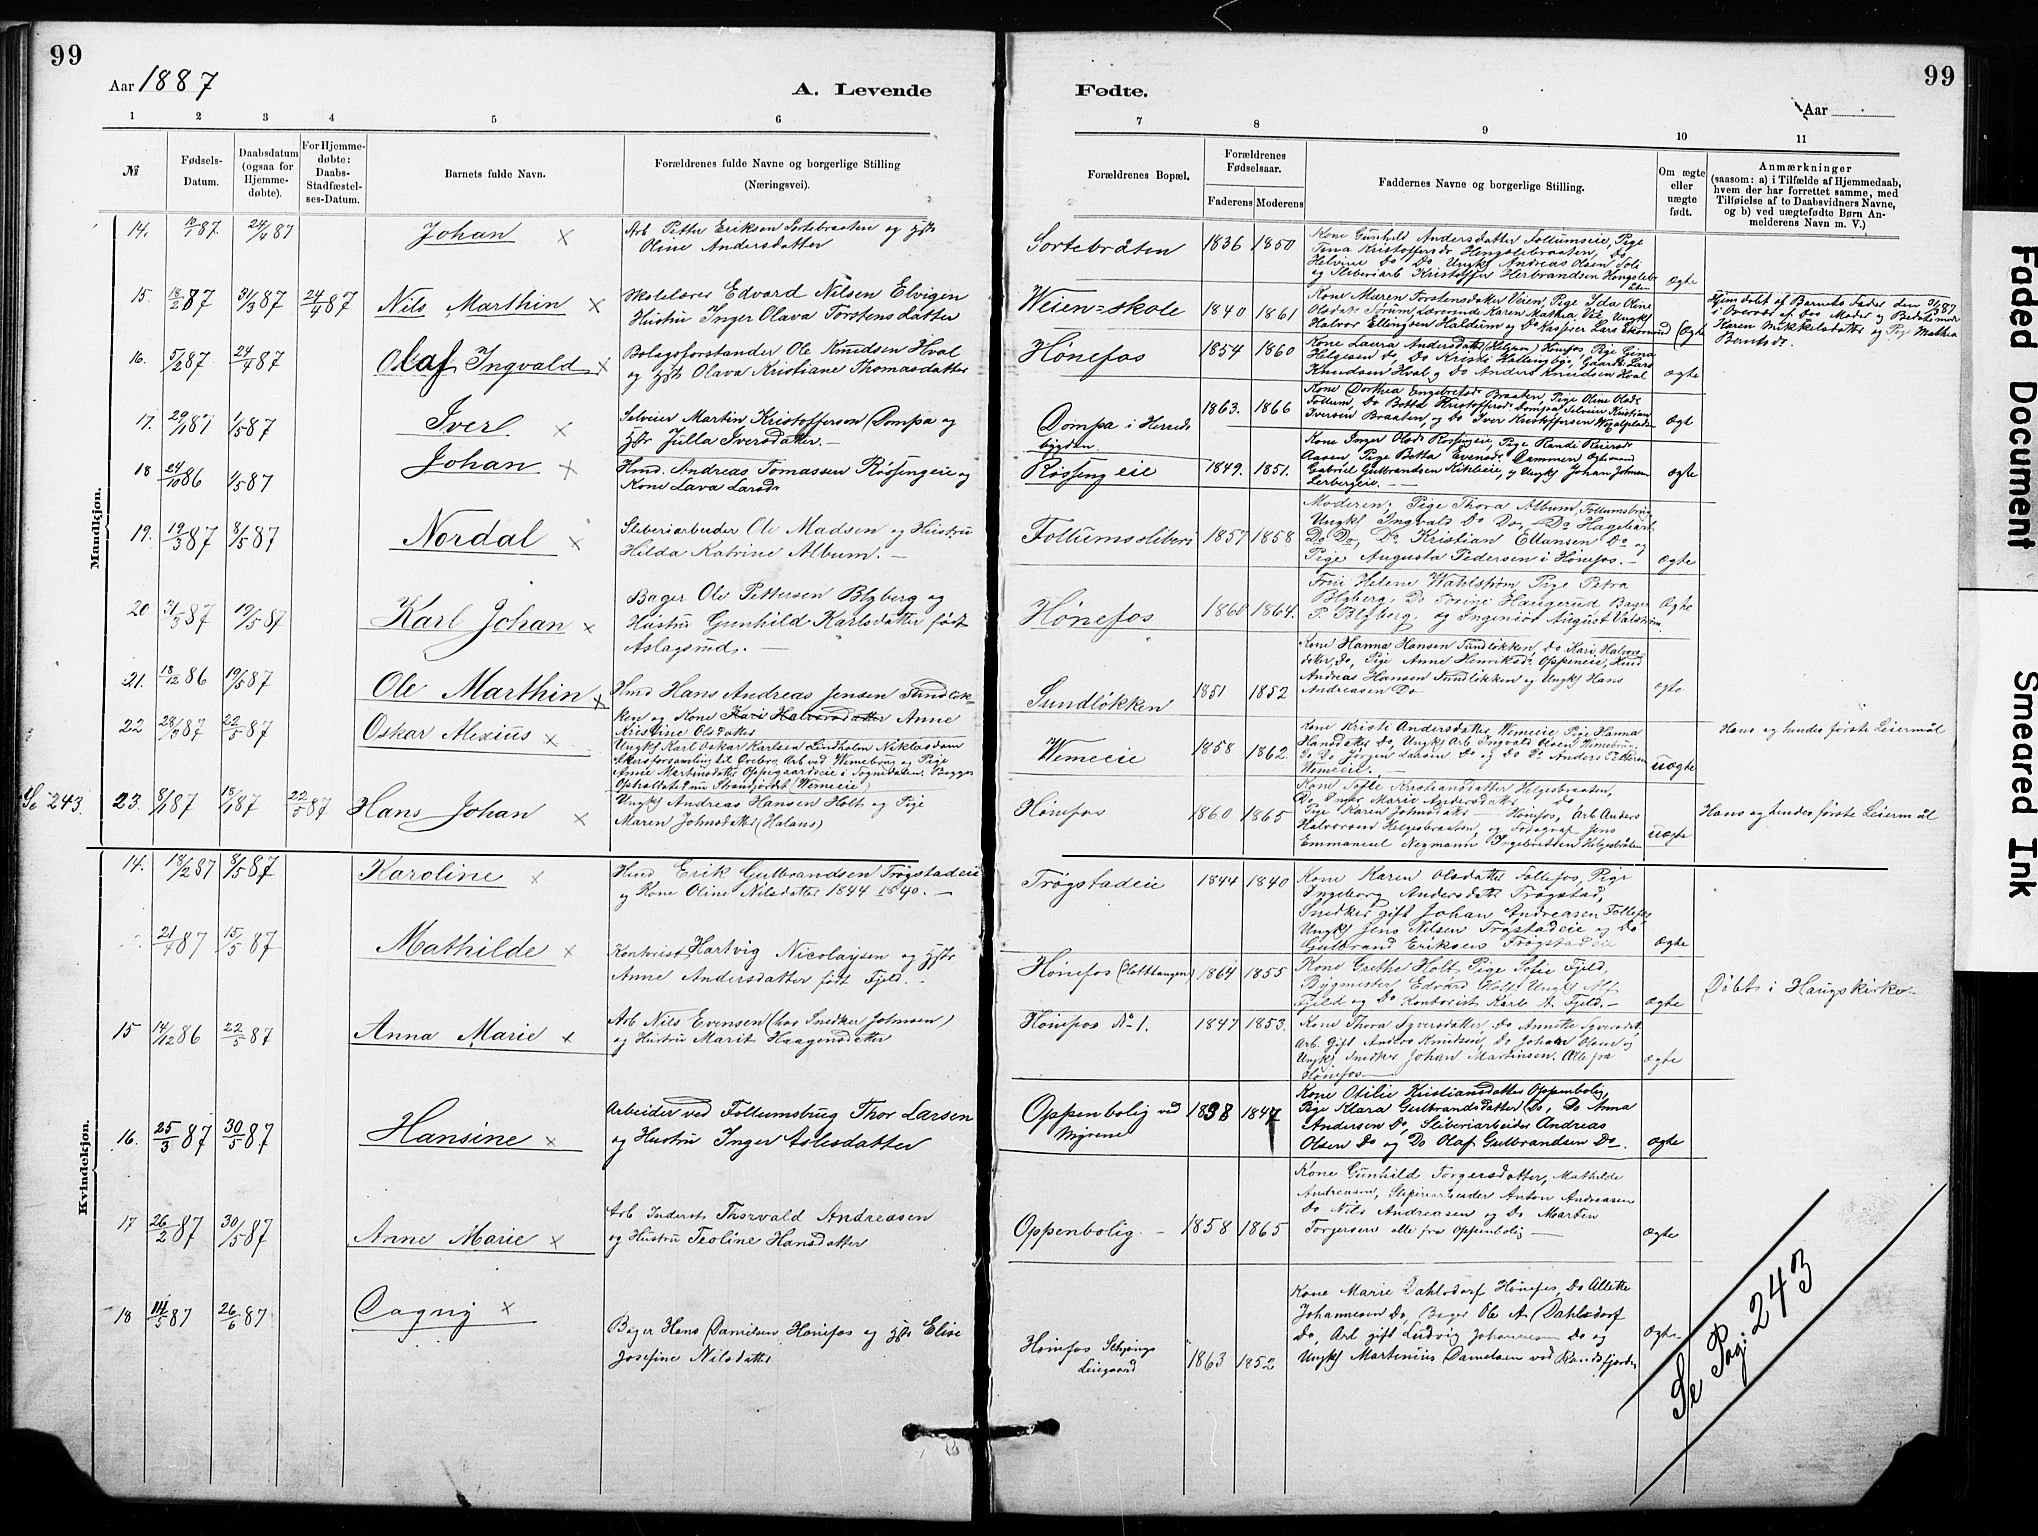 99
Aar 1887
A. Levende
1 2 3 4 5 6
№ Fødsels-Datum. Daabsdatum (ogsaa for Hjemmedøbte). For Hjemmedøbte: Daabs-Stadfæstelses-Datum. Barnets fulde Navn. Forældrenes fulde Navne og borgerlige Stilling (Næringsvei).
Mandkjøn.
14. 24/4 87 Johan × Arb Petter Eriksen Sortebraaten og
Oline Andersdatter
15. 18/2 87 31/3 87 24/4 87 Nils Marthin × Skolelærer Edvard Nilsen Elvigen
Hustru Inger Olava Torstensdatter
16. 5/2 87 24/4 87 Olaf Ingvald × Bolagsforstander Ole Knudsen Hval
og Olava Kristiane Thomasdatter
17. 29/1 87 1/5 87 Iver × Selveier Martin Kristofferson Dompa og
Julla Iversdatter. —
18 24/10 86 1/5 87 Johan × Hmd. Andreas Tomassen Røssingeie og
Kone Lava Larsdr
19. 19/3 87 8/5 87 Nordal × Sliberiarbeider Ole Madsen og Hustru
Hilda Katrine Album. —
20 31/3 87 19/5 87 Karl Johan × Bager Ole Pettersen Blyberg og
Hustru Gunhild Karlsdatter født
Aslagsrud. —
21. 18/12 86 19/5 87 Ole Marthin × Hmd Hans Andreas Jensen Sundløk-
ken og Kone Kari Halvorsdatter Anne
Kristine Olsdatter
22 28/3 87 22/5 87 Oskar Alexius × Ungkf Karl Oskar Karlsen Lindholm Niklasdam
Akersforsamling til Ørebro, Arb ved Wemebrug og Pige
Annie Martinsdatter Oppegaardseie i Sognedalen. Begges
Opholdst. nu Strandjordet (Wemeeie)
Se 243. 23. 8/1 87 18/1 87 22/5 87 Hans Johan × Ungkf Andreas Hansen Holt og Pige
Maren Johnsdatter (Halans)
Kvindekjøn.
14. 18/2 87 8/5 87 Karoline × Hmd Erik Gulbrandsen Trøgstadeie
og Kone Oline Nilsdatter 1844 1840. —
21/4 87 15/5 87 Mathilde × Kontorist Hartvig Nicolaysen og
Anne Andersdatter født Fjeld. —
15 14/12 86 22/5 87 Anna Marie × Arb Nils Evensen (hos Snedker Johnsen)
og Hustru Marit Haagensdatter
16. 25/3 87 30/5 87 Hansine × Arbeider ved Follumsbrug Thor Larsen
og Hustru Inger Aslesdatter
17 26/2 87 30/5 87 Anne Marie × Arb Inderst Thorvald Andreasen
og Hustru Teoline Hansdatter
18 14/5 87 26/6 87 Dagny × Bager Hans Danielsen Hønefos og Elise
Josefine Nilsdatter
99
Fødte.
Aar
7 8 9 10 11
Forældrenes Bopæl. Forældrenes Fødselsaar. Faderens Moderens Faddernes Navne og borgerlige Stilling. Om ægte eller uægte født. Anmærkninger
(saasom: a) i Tilfælde af Hjemmedaab,
hvem der har forrettet samme, med
Tilføielse af to Daabsvidners Navne,
og b) ved uægtefødte Børn Anmelderens Navn m. V.)
Sortebråten 1836 1850 Kone Gunhild Andersdatter Follumseie, Pige
Tina Kristoffersdr Hengslebraaten, Do
Helvine Do Do Ungkf Andreas Olsen Foli
og Sliberiarb Kristoffer Herbrandsen Hengsleb
råten ægte
Weien-skole 1840 1861 Kone Maren Torstensdatter Veien, Pige Ida Oline
Olsdatter Sørum, Lærerinde Karen Mathea Vee, Ungkf
Halvor Ellingsen Haldum og Do Kasserer Lars Skorsrud ægte
Hjemdøbt af Barnets Fader den 31/3 87
i Overvær af Dos Moder og Bedstemoder
Karen Mikkelsdatter og Pige Mathea
Berntsdr.
Hønefos 1854 1860 Kone Laura Andersdatter Hønefos, Pige Gina
Helgesen Do, Do Kristi Hallingby, Gaardb. Lars
Knudsen Hval og Do Anders Knudsen Hval ægte
Dompa i Herreds-
bygden 1863. 1866 Kone Dorthea Engebretsdr Braaten, Pige Oline Olsdr
Follum, Do Betta Kristoffersdr Dompa, Selveier Kristian
Iversen Braaten, og Do Iver Kristoffersen ægte
Røssingeie 1849. 1851. Kone Inger Olsdr Røssingeie, Pige Randi Reiersdr
Aasen, Pige Betta Evensdr Dammen
Gabriel Gulbrandsen og Ungkf Johan Johnsen
Lerbergeie. — ægte
Follumssliberi 1857 1858 Moderen, Pige Thora Album Follumsbrug
Ungkf Ingvald Do Do, Do Hagebart
Do Do, Do Kristian Ellansen Do og
Pige Augusta Pedersen i Hønefos. — ægte
Hønefos 1860 1864. Frue Helene Wahlstrøm Pige Petra
Blyberg, Do Torine Haugerud Bager
P. Blyberg, og Ingeniør August Valstrøm. ægte
Sundløkken 1851 1852 Kone Hanna Hansen Sundløkken, Do Kari Halvors-
datter, Do, Pige Anne Henriksdr Oppeneie, Hmd
Andreas Hansen Sundløkken og Ungkf Hans
Andreasen Do ægte
Wemeeie 1858 1862. Kone Kristi Andersdatter Wemeeie Pige Hanna
Hansdatter Do, Ungkf Arb Ingvald Olsen Wemebrug
Do Do Jørgen Larsen Do og Do Do Anders Petersen
Wemeeie. — uægte Hans og hendes første Leiermål
Hønefos 1860 1865 Kone Tofte Kristiansdatter Helgesbraaten,
Do Inger Marie Andersdatter Do
Pige Karen Johnsdatter — Hønefos, Arb Anders
Halvorsen Helgesbraaten, og Fotograf Jens
Emmanuel Negmann Ingebretsen Helgesbråten uægte Hans og hendes første Leiermål
Trøgstadeie 1844 1840 Kone Karen Olsdatter Follefos, Pige
Ingeborg Andersdatter Trøgstad,
Snedker gift Johan Andreasen Follefos
Ungkf Jens Nilsen Trøgstadeie og Do
Gulbrand Eriksens Trøgstadeie ægte
Hønefos (Holtbangen) 1864 1855 Kone Grethe Holt Pige Sofie Fjeld,
Bygmester Edvard Holt Ungkf Alf
Fjeld og Do Kontorist Karl A. Fjeld. — ægte Døbt i Haugs kirke —
Hønefos No 1. 1847 1853. Kone Thora Syversdatter, Do Annette Syversdatter
Arb. Gift Anders Knutsen, Do Johan Olsen og
Ungkf Snedker Johan Martinsen. Alle fra
Hønefos — ægte
Oppenbolig ved
Myrene 1838 1847 Kone Otilie Kristiansdatter Oppenbolig,
Pige Klara Gulbrandsdatter Do, Do Anna
Andersen Do, Sliberiarbeider Andreas
Olsen Do og Do Olaf Gulbrandsen Do. ægte
Oppenbolig. — 1858 1865 Kone Gunhild Torgersdatter, Mathilde
Andreasen, Sliperiarbeider Anton Andreasen
Do Nils Andreasen og Do Morten
Torgersen alle fra Oppenbolig — ægte
Hønefos Schjongs
Leiegaard 1863 1852 Kone Marie Dahlsdorf Hønefos, Do Alette
Johannesen Do, Bager Ole A. Dahlsdorf
Do, Arb gift Ludvig Johannesen Do og
Ungkf Martenius Danielsen ved Randsfjorden ægte
Se Pag: 243
Faded Document
Smeared Ink